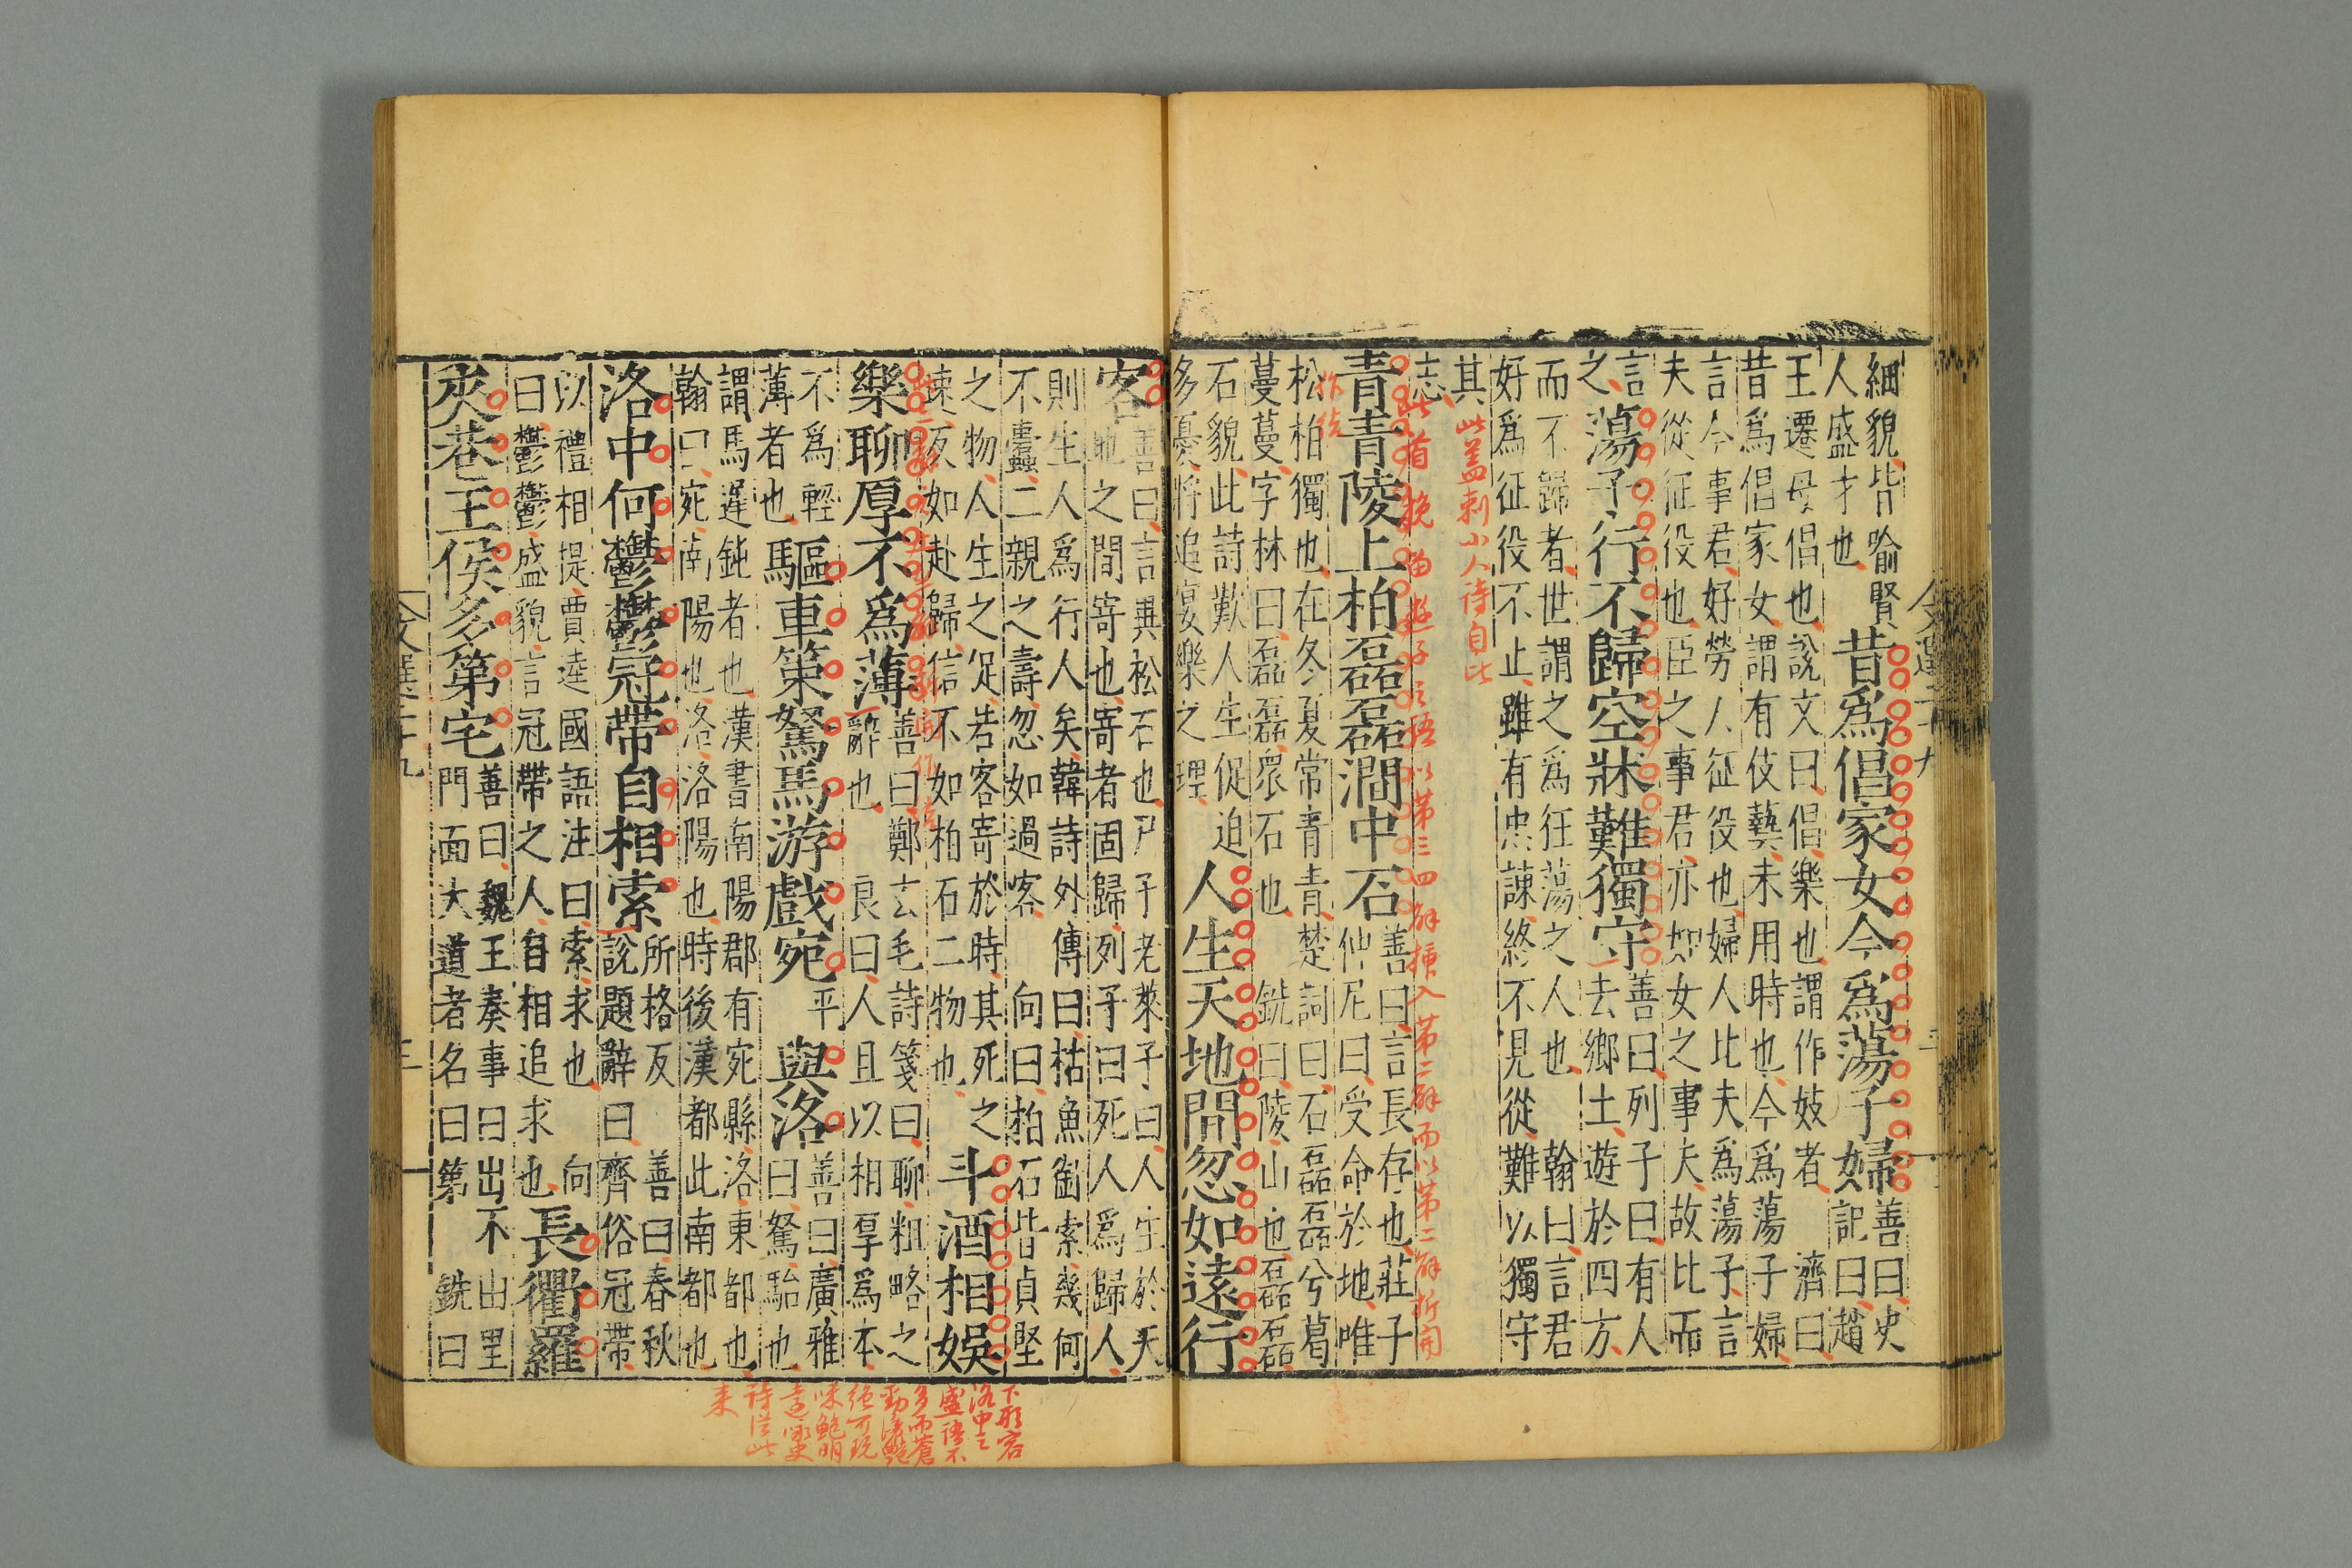 細貌皆喻賢
人盛才也
昔爲倡家女今爲蕩子婦
善曰史
記曰趙
王遷母倡也說文曰倡樂也謂作妓者 濟曰
昔爲倡家女謂有伎藝未用時也今爲蕩子婦
言今事君好勞人征役也婦人比夫爲蕩子言
夫從征役也臣之事君亦如女之事夫故比而
言
之
蕩子行不歸空牀難獨守
善曰列子曰有人
去鄉土遊於四方
而不歸者世謂之爲狂蕩之人也 翰曰言君
好爲征役不止雖有忠諫終不見從難以獨守
其
志
此蓋刺小人待自此
青青陵上柏磊磊磵中石
善曰言長存也莊子
仲尼曰受命於地唯
松柏獨也在冬夏常青青楚詞曰石磊磊兮葛
蔓蔓字林曰磊磊衆石也 銑曰陵山也磊磊
石貌此詩歎人生促迫
多憂將追宴樂之理
人生天地間忽如遠行
客
善曰言異松石也尸子老萊子曰人生於天
地之間寄也寄者固歸列子曰死人爲歸人
則生人爲行人矣韓詩外傳曰枯魚銜索幾何
不蠹二親之壽忽如過客 向曰柏石皆貞堅
之物人生之促若客寄於時其死之
速反如赴歸信不如柏石二物也
斗酒相娛
樂聊厚不爲薄
善曰鄭玄毛詩箋曰聊粗略之
辭也 良曰人且以相厚爲本
不爲輕
薄者也
驅車策駑馬游戲宛
平
與洛
善曰廣雅
曰駑駘也
謂馬遲鈍者也漢書南陽郡有宛縣洛東都也
翰曰宛南陽也洛洛陽也時後漢都此南都也
洛中何鬱鬱冠帶自相索
所格反 善曰春秋
說題辭曰齊俗冠帶
以禮相提賈逵國語注曰索求也 向
曰鬱鬱盛貌言冠帶之人自相追求也
長衢羅
夾巷王侯多第宅
善曰魏王奏事曰出不由里
門面大道者名曰第 銑曰
下形容
洛中之
盛語不
多而蒼
勁濃艷
絕可玩
味鮑明
遠詠史
詩從此
來